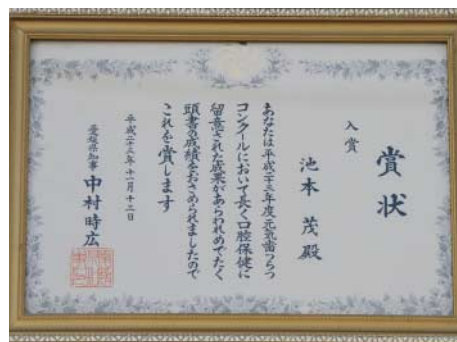 賞状
入賞
池本 茂殿
あなたは平成二十三年度元気歯つらつ
コンクールにおいて長く口腔保健に
留意された成果があらわれめでたく
頭書の成績をおさめられましたので
これを賞します
平成二十三年十一月十三日
愛媛県知事 中村時広